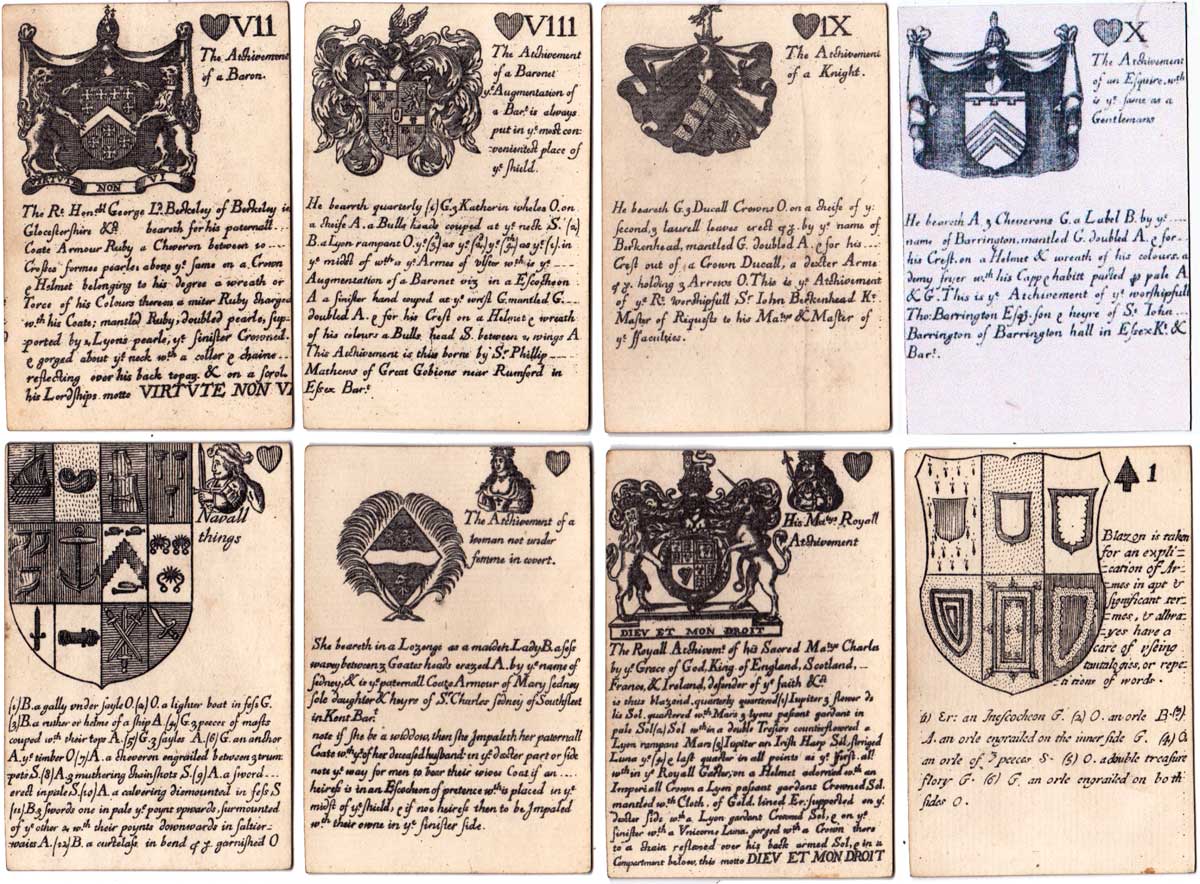 VII
The Atchivement
of a Baron.
VIRTVTE NON VI
The Rt. Honble George Ld. Berkeley of Berkeley in
Glocestershire &c. beareth for his paternall
Coate Armour Ruby a Cheveron between 10
Crosses formee pearle, above ye same on a Crown
& Helmet belonging to his degree a wreath or
Torce of his Colours thereon a miter Ruby charged
wth his Coate; mantled Ruby, doubled pearle, sup-
ported by 2 Lyons pearle, ye sinister Crowned
& gorged about ye neck wth a coller & chaine
reflecting over his back topaz. & on a scrol
his Lordships motto VIRTVTE NON VI
VIII
The Atchivement
of a Baronet
ye Augmentation of
a Bart. is always
put in ye most con-
venientest place of
ye shield.
He beareth quarterly (1) G. 3 Katherin wheles O. on
a cheife A. a Bulls heade couped at ye neck S. (2)
B. a Lyon rampant O. ye (3) as ye (2) ye (4) as ye (1). in
ye midst of wch a ye Armes of Vlster wch is ye
Augmentation of a Baronet viz in a Escocheon
A a sinister hand couped at ye wrist G. mantled G.
doubled A. & for his Crest on a Helmet & wreath
of his colours a Bulls head S. between 2 wings A
This Atchivement is thus borne by Sr. Phillip
Mathews of Great Gobions near Rumford in
Essex Bart.
IX
The Atchivement
of a Knight.
He beareth G. 3 Ducall Crowns O. on a cheife of ye
second, 3 laurell leaves erect ppr. by ye name of
Berkenhead, mantled G. doubled A. & for his
Crest out of a Crown Ducall, a dexter Arme
ppr. holding 3 Arrows O. This is ye Atchivement
of ye Rt. worshipfull Sr. Iohn Berkenhead Kt.
Master of Riquests to his Matye & Master of
ye ffaculties.
X
The Atchivement
of an Esquire, wch
is ye same as a
Gentlemans
He beareth A. 3 Cheverons G. a Label B. by ye
name of Barrington, mantled G. doubled A. & for
his Crest, on a Helmet & wreath of his colours, a
demy fryer wth his Capp & habitt parted p pale A
& G. This is ye Atchivement of ye worshipfull
Tho: Barrington Esqr. son & heyre of Sr. Iohn
Barrington of Barrington hall in Essex Kt. &
Bart.
Navall
things
(1) B. a gally vnder sayle O. (2) O. a lighter boat in fess G.
(3) B. a ruther or helme of a ship A. (4) G. 3 peeces of masts
couped wth their tops A. (5) G. 3 sayles A. (6) G. an anchor
A. ye timber O. (7) A. a cheveron engrailed between 3 trum
pets S. (8) A. 3 muthering chainshots S. (9) A. a sword
erect in pale S. (10) A. a calvering dismounted in fess S
(11) B. 3 swords one in pale ye poynt vpwards, surmounted
of ye other 2 wth their poynts downwards in saltier-
waies A. (12) B. a curtelass in bend ppr. garnished O
The Atchivement of a
woman not under
femme in covert.
She beareth in a Lozenge as a maiden Lady B. a fess
wavey between 3 Goates heads erazed A. by ye name of
sedney, & is ye paternall Coate Armour of Mary sedney
sole daughter & heyre of Sr. Charles sedney of Southfleet
in Kent Bart.
note if she be a widdow, then she Impaleth her paternall
Coate wth yt of her deceased husband in ye dexter part or side
note ye way for men to bear their wives Coat if an
heiress is in an Escocheon of pretence wch is placed in ye
midst of ye shield, & if not heiress then to be Impaled
wth their owne in ye sinister side.
His Matyes Royall
Atchivement
DIEV ET MON DROIT
The Royall Atchivemt. of his Sacred Matye Charles
by ye Grace of God, King of England, Scotland,
France, & Ireland, defender of ye faith &c
is thus blazond, quarterly quartered (1) Iupiter 3 flower de
lis Sol, quartered wth Mars 3 lyons passant gardant in
pale Sol (2) Sol wthin a double Tresure counterflowred a
Lyon rampant Mars (3) Iupiter an Irish Harp Sol, stringed
Luna ye (4) & last quarter in all points as ye first. all
wthin ye Royall Garter, on a Helmet adorned wth an
Imperiall Crown a Lyon passant gardant Crowned Sol,
mantled wth Cloth of Gold, lined Er: supported on ye
dexter side wth a Lyon gardant Crowned Sol, & on ye
sinister wth a Vnicorne Luna, gorged wth a Crown there
to a chain reflexed over his back armed Sol, & in a
Compartment below, this motto DIEV ET MON DROIT
1
Blazon is taken
for an expli-
cation of Ar-
mes in apt &
significant ter-
mes, & allwa-
yes have a
care of vseing
tautalogies, or repe-
titions of words.
(1) Er: an Inescocheon G. (2) O. an orle B. (3).
A. an orle engrailed on the inner side G. (4) O.
an orle of 3 peeces S. (5) O. a double treasure
flory G. (6) G. an orle engrailed on both
sides O.